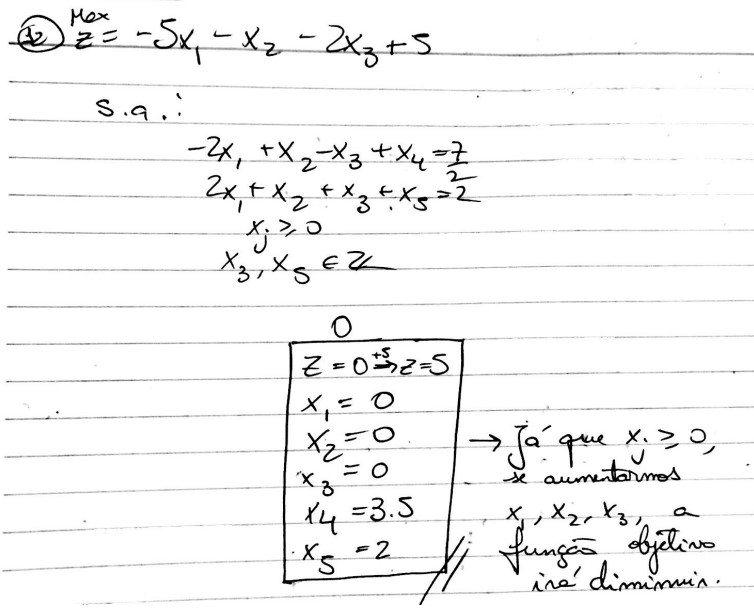 12 Max
z = -5x₁ - x₂ - 2x₃ + 5
s.a.:
-2x₁ + x₂ - x₃ + x₄ = 7/2
2x₁ + x₂ + x₃ + x₅ = 2
xⱼ ≥ 0
x₃, x₅ ∈ ℤ
0
Z = 0 +5→ z=5
x₁ = 0
x₂ = 0
x₃ = 0
x₄ = 3.5
x₅ = 2
→ Já que xⱼ ≥ 0,
se aumentarmos
x₁, x₂, x₃, a
função objetivo
irá diminuir.